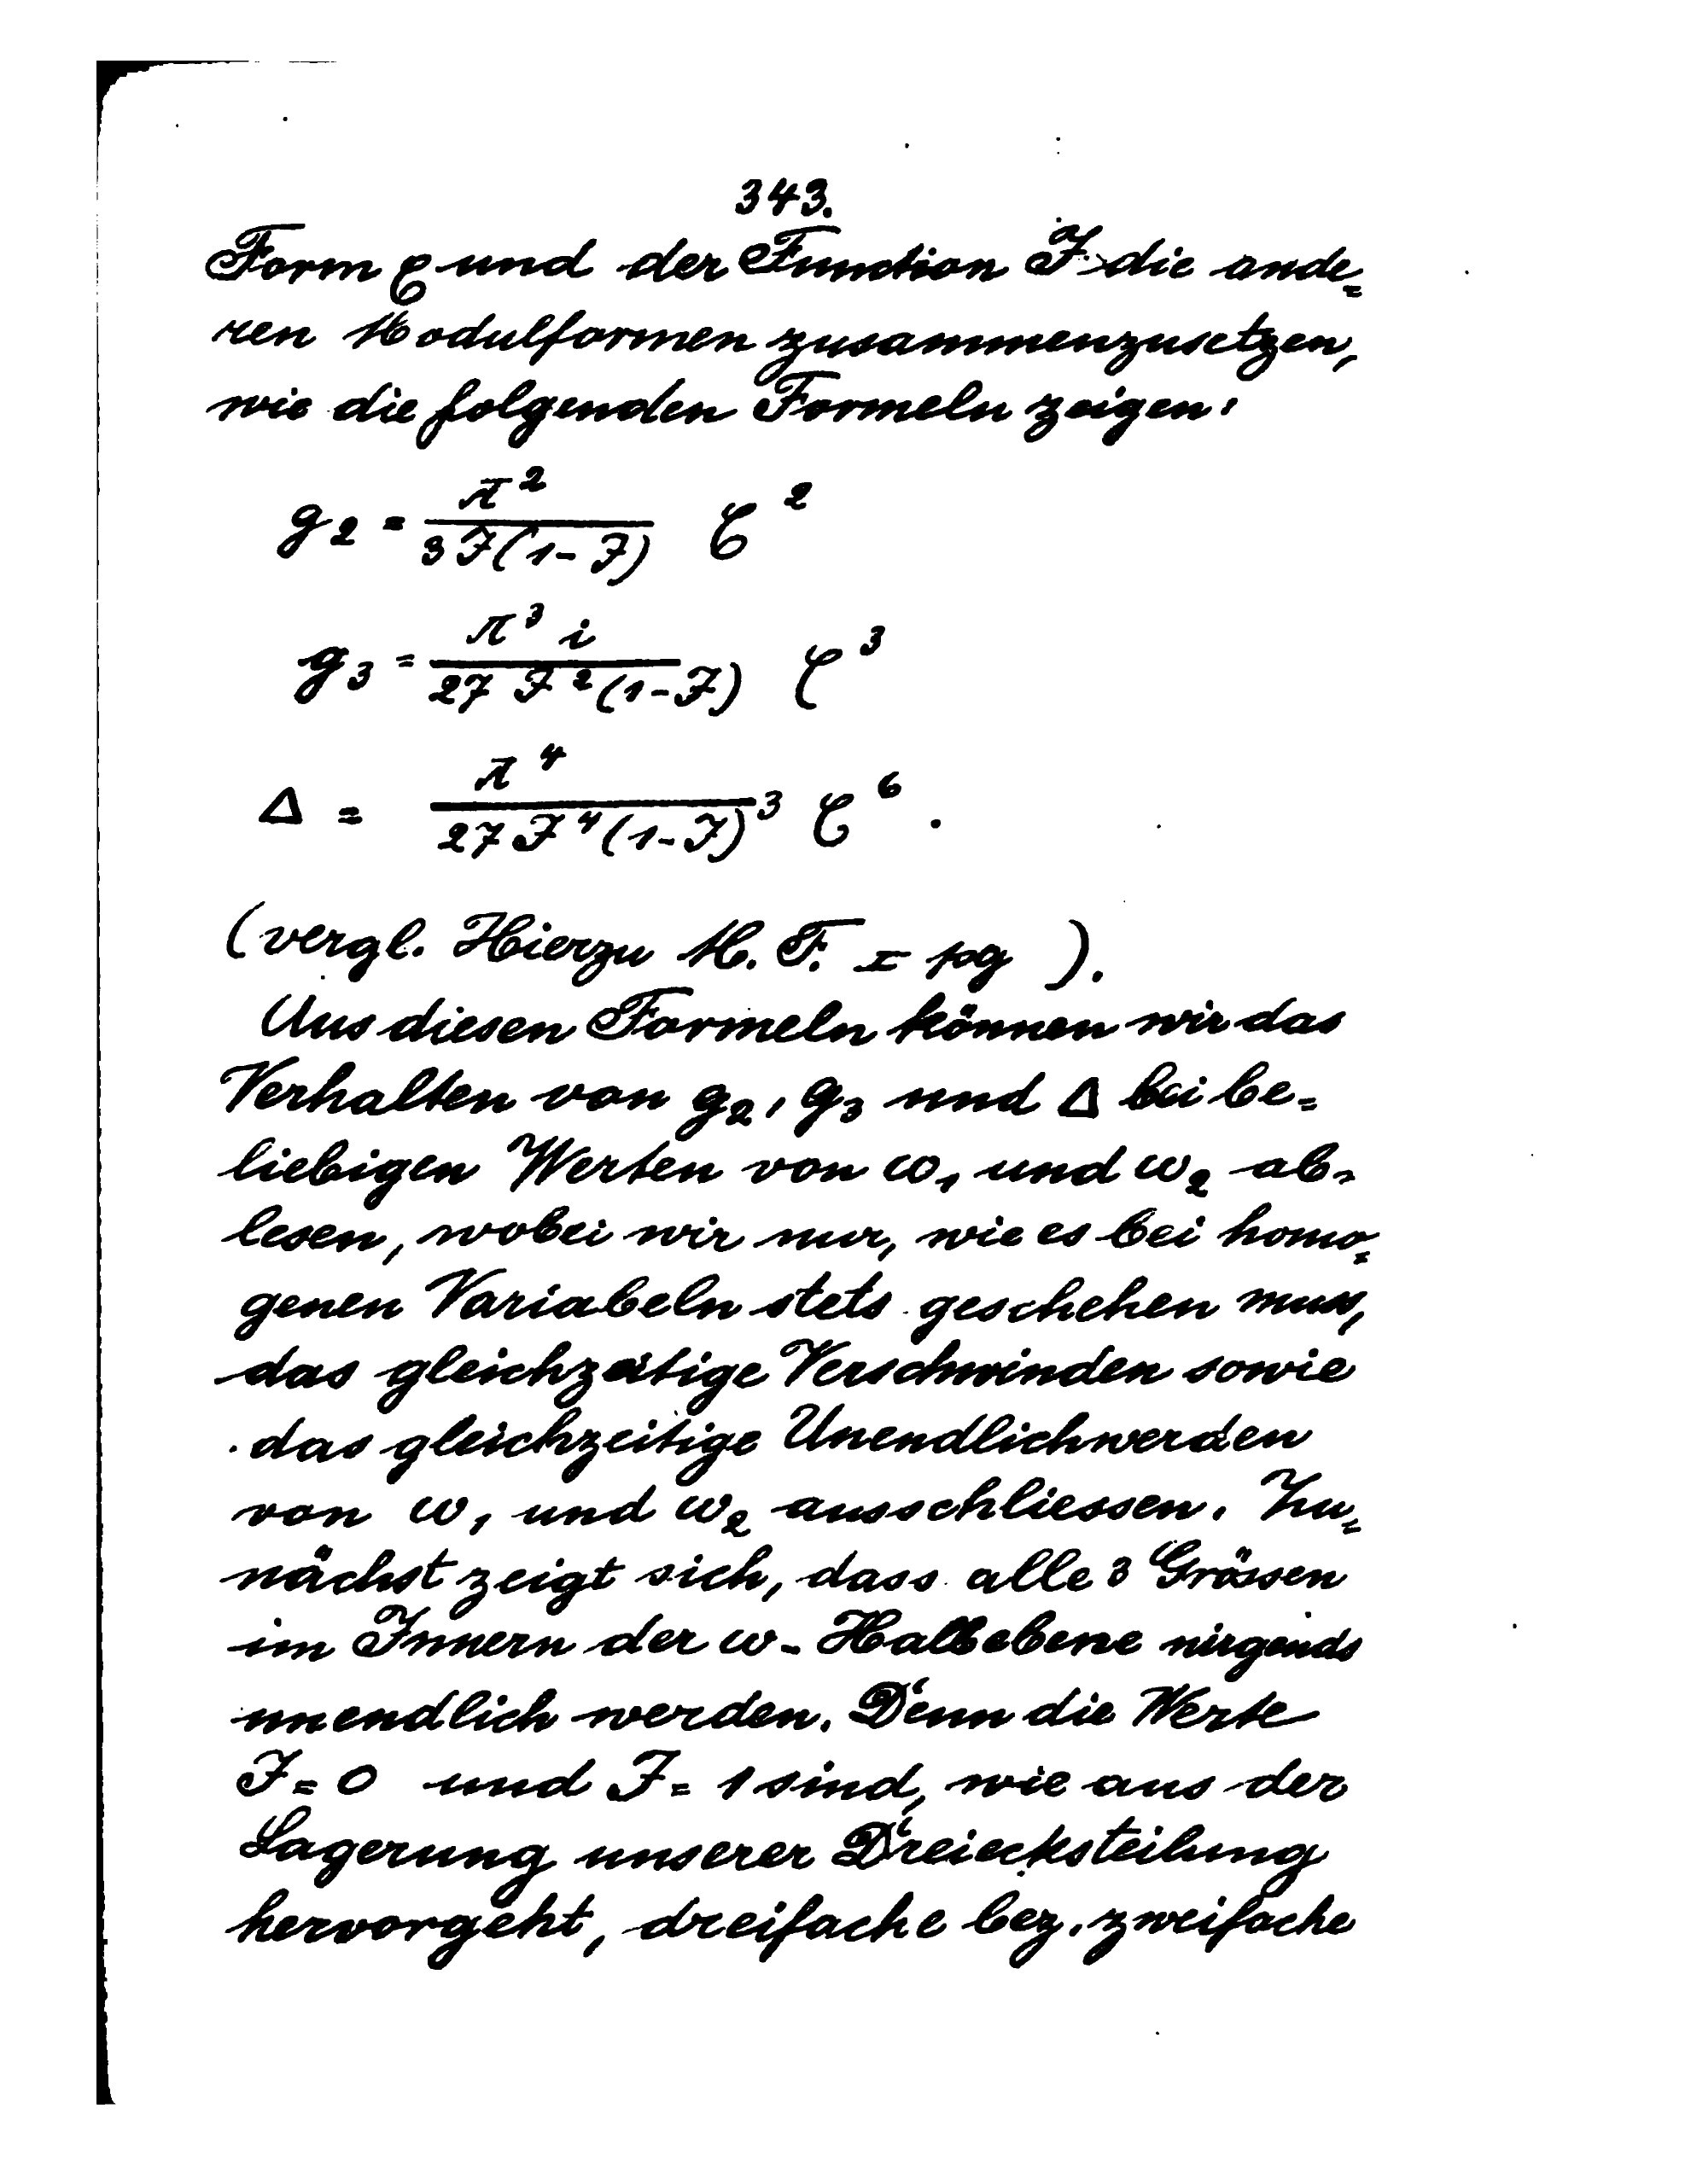 343.
Form ζ und der Function J die ande=
ren Modulformen zusammenzusetzen,
wie die folgenden Formeln zeigen:
g₂ = π² / 3J(1-J) ζ²
g₃ = π³ i / 27 J²(1-J) ζ³
Δ = π⁴ / 27 J⁴(1-J)³ ζ⁶.
(vergl. Hierzu M. F. I pg ).
Aus diesen Formeln können wir das
Verhalten von g₂, g₃ und Δ bei be=
liebigen Werten von ω₁ und ω₂ ab=
lesen, wobei wir nur, wie es bei homo=
genen Variabeln stets geschehen muss,
das gleichzeitige Verschwinden sowie
das gleichzeitige Unendlichwerden
von ω₁ und ω₂ ausschliessen. Zu=
nächst zeigt sich, dass alle 3 Grössen
im Innern der ω-Halbebene nirgends
unendlich werden. Denn die Werte
J=0 und J=1 sind, wie aus der
Lagerung unserer Dreiecksteilung
hervorgeht, dreifache bez. zweifache